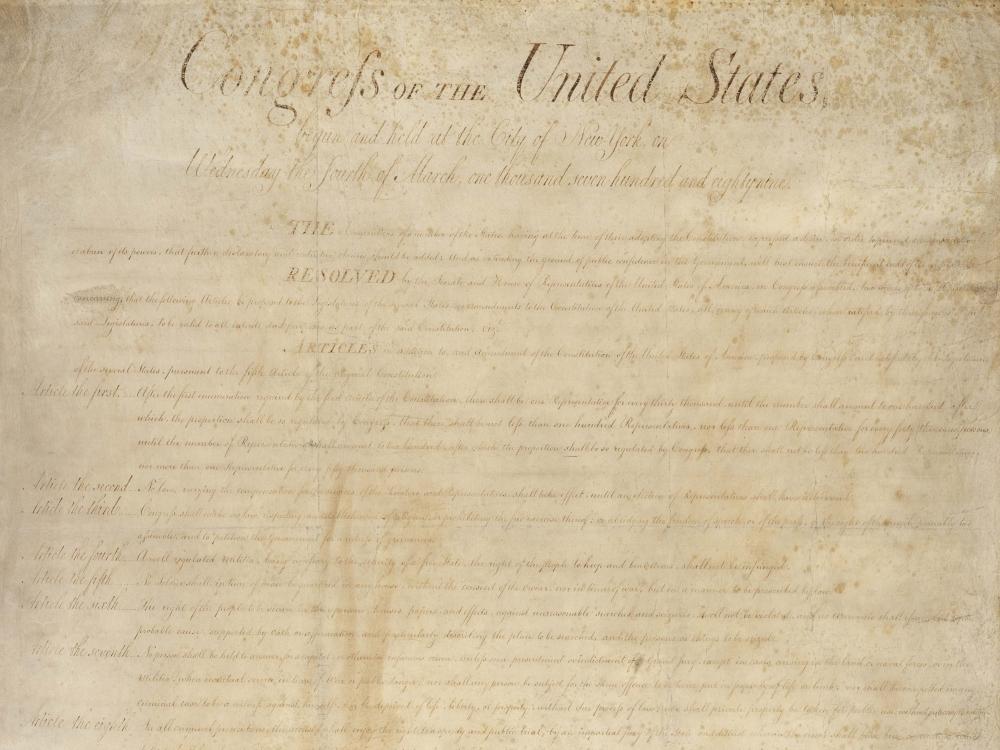 Congress OF THE United States,
begun and held at the City of New-York, on
Wednesday the fourth of March, one thousand seven hundred and eighty nine.
THE Conventions of a number of the States, having at the time of their adopting the Constitution, expressed a desire, in order to prevent
or abuse of its powers, that further declaratory and restrictive clauses should be added: And as extending the ground of public confidence in the Government, will best ensure the beneficent ends of its
RESOLVED by the Senate and House of Representatives of the United States of America, in Congress assembled, two thirds of
concurring, that the following Articles be proposed to the Legislatures of the several States, as amendments to the Constitution of the United States, all, or any of which Articles, when ratified by three fourths of the
said Legislatures, to be valid to all intents and purposes, as part of the said Constitution. viz.
ARTICLES in addition to, and Amendment of the Constitution of the United States of America, proposed by Congress, and ratified by the Legislatures
of the several States, pursuant to the fifth Article of the original Constitution.
Article the first... After the first enumeration required by the first Article of the Constitution, there shall be one Representative for every thirty thousand, until the number shall amount to one hundred, after
which, the proportion shall be so regulated by Congress, that there shall be not less than one hundred Representatives, nor less than one Representative for every forty thousand persons,
until the number of Representatives shall amount to two hundred, after which the proportion shall be so regulated by Congress, that there shall not be less than two hundred Representatives,
nor more than one Representative for every fifty thousand persons.
Article the second... No law, varying the compensation for the services of the Senators and Representatives, shall take effect, until an election of Representatives shall have intervened.
Article the third... Congress shall make no law respecting an establishment of religion, or prohibiting the free exercise thereof; or abridging the freedom of speech, or of the press, or the right of the people peaceably to
assemble, and to petition the Government for a redress of grievances.
Article the fourth... A well regulated Militia, being necessary to the security of a free State, the right of the people to keep and bear Arms, shall not be infringed.
Article the fifth... No Soldier shall, in time of peace be quartered in any house, without the consent of the owner, nor in time of war, but in a manner to be prescribed by law.
Article the sixth... The right of the people to be secure in their persons, houses, papers, and effects, against unreasonable searches and seizures, shall not be violated, and no warrants shall issue, but upon
probable cause, supported by oath or affirmation, and particularly describing the place to be searched, and the persons or things to be seized.
Article the seventh... No person shall be held to answer for a capital, or otherwise infamous crime, unless on a presentment or indictment of a Grand Jury, except in cases arising in the land or naval forces, or in the
Militia, when in actual service in time of War or public danger; nor shall any person be subject for the same offence to be twice put in jeopardy of life or limb; nor shall be compelled in any
criminal case to be a witness against himself, nor be deprived of life, liberty, or property, without due process of law; nor shall private property be taken for public use, without just compensation.
Article the eighth... In all criminal prosecutions, the accused shall enjoy the right to a speedy and public trial, by an impartial jury of the State